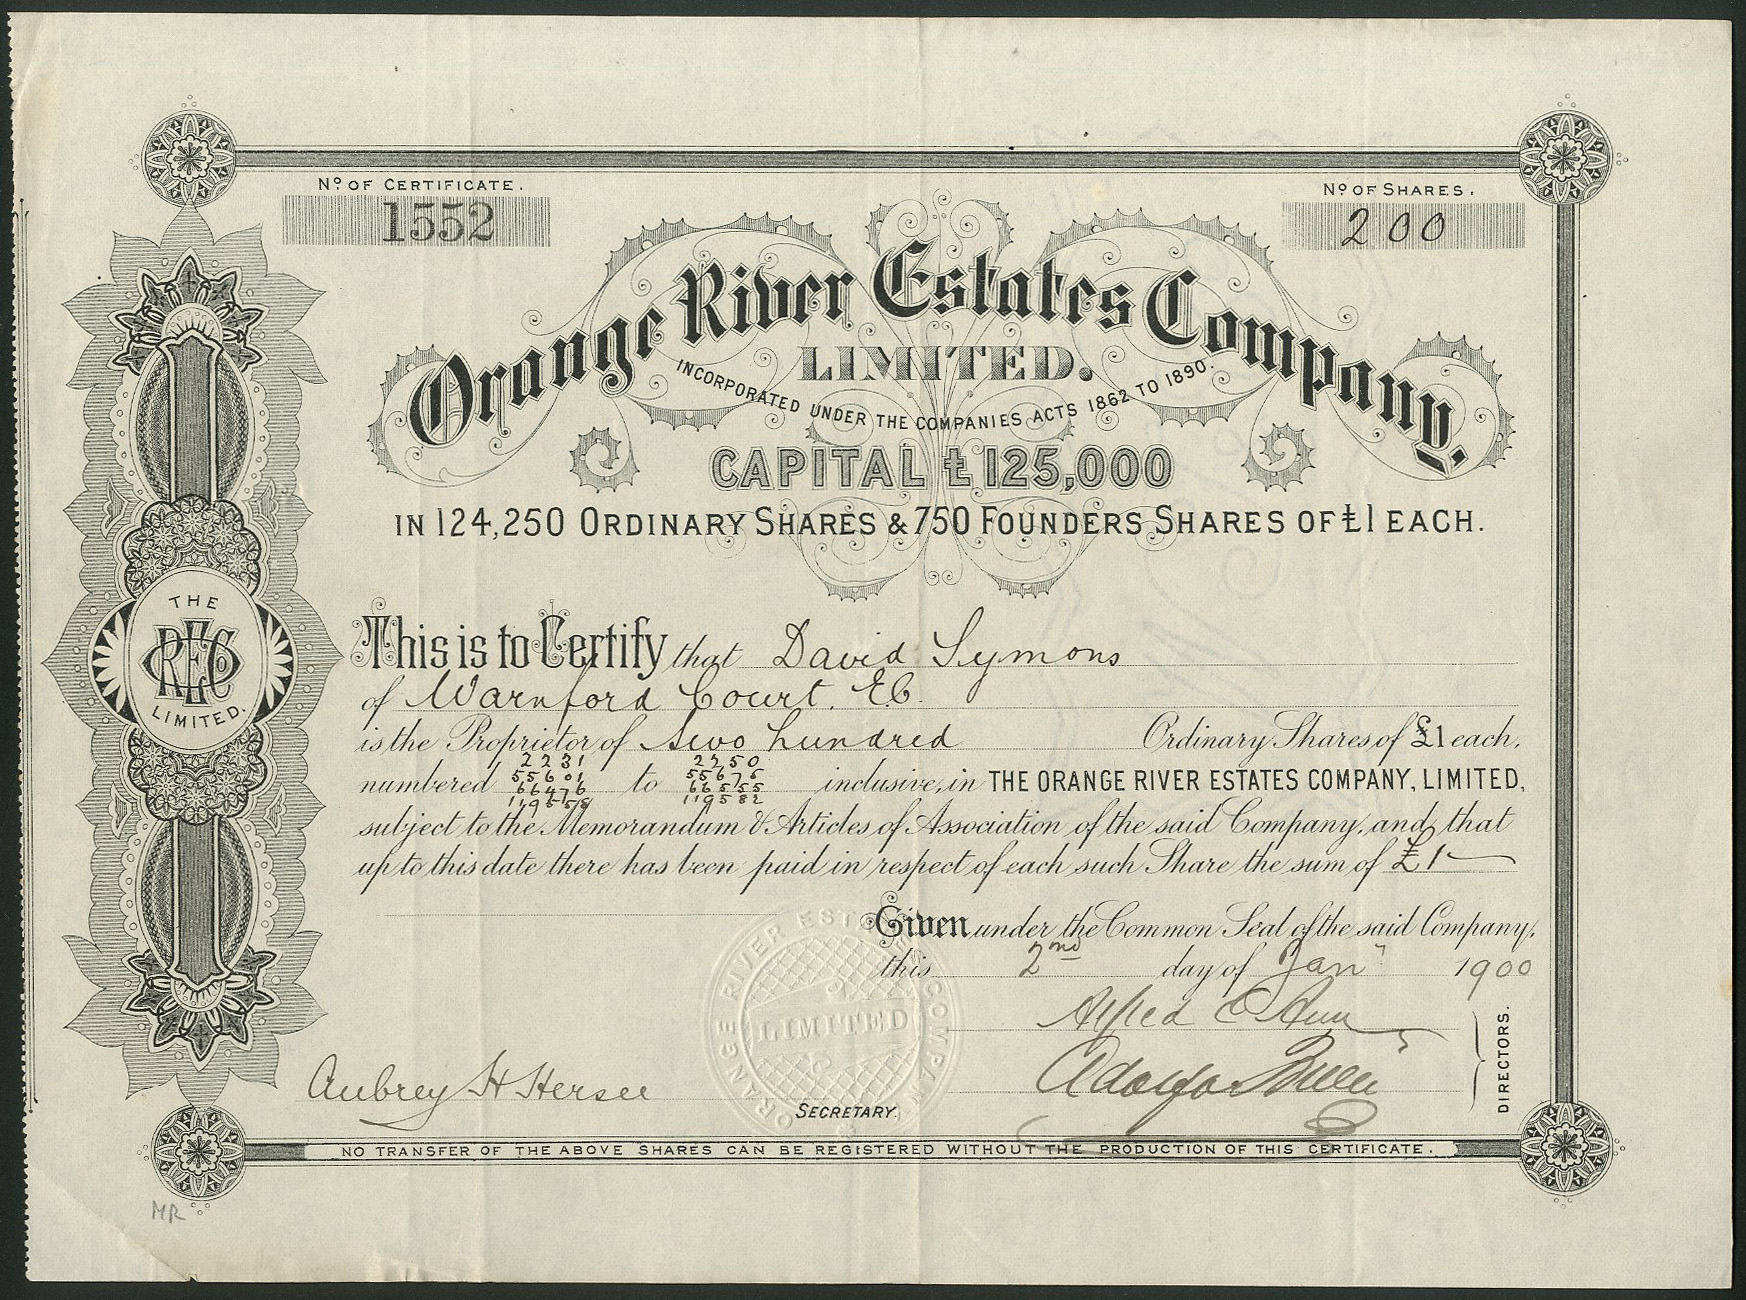 Nº OF CERTIFICATE.
1552
Nº OF SHARES.
200
Orange River Estates Company.
LIMITED.
INCORPORATED UNDER THE COMPANIES ACTS 1862 TO 1890.
CAPITAL £125,000
IN 124,250 ORDINARY SHARES & 750 FOUNDERS SHARES OF £1 EACH.
THE
REC
LIMITED.
This is to Certify that David Symons
of Warnford Court. E.C.
is the Proprietor of two hundred Ordinary Shares of £1 each,
numbered 2231 to 2250 inclusive, in THE ORANGE RIVER ESTATES COMPANY, LIMITED,
55601 55675
66476 66555
119558 119582
subject to the Memorandum & Articles of Association of the said Company, and that
up to this date there has been paid in respect of each such Share the sum of £1
Given under the Common Seal of the said Company,
this 2nd day of Jan 1900
ORANGE RIVER ESTATES COMPANY
LIMITED
Alfred
DIRECTORS.
Aubrey H Hersee
SECRETARY.
NO TRANSFER OF THE ABOVE SHARES CAN BE REGISTERED WITHOUT THE PRODUCTION OF THIS CERTIFICATE.
MR